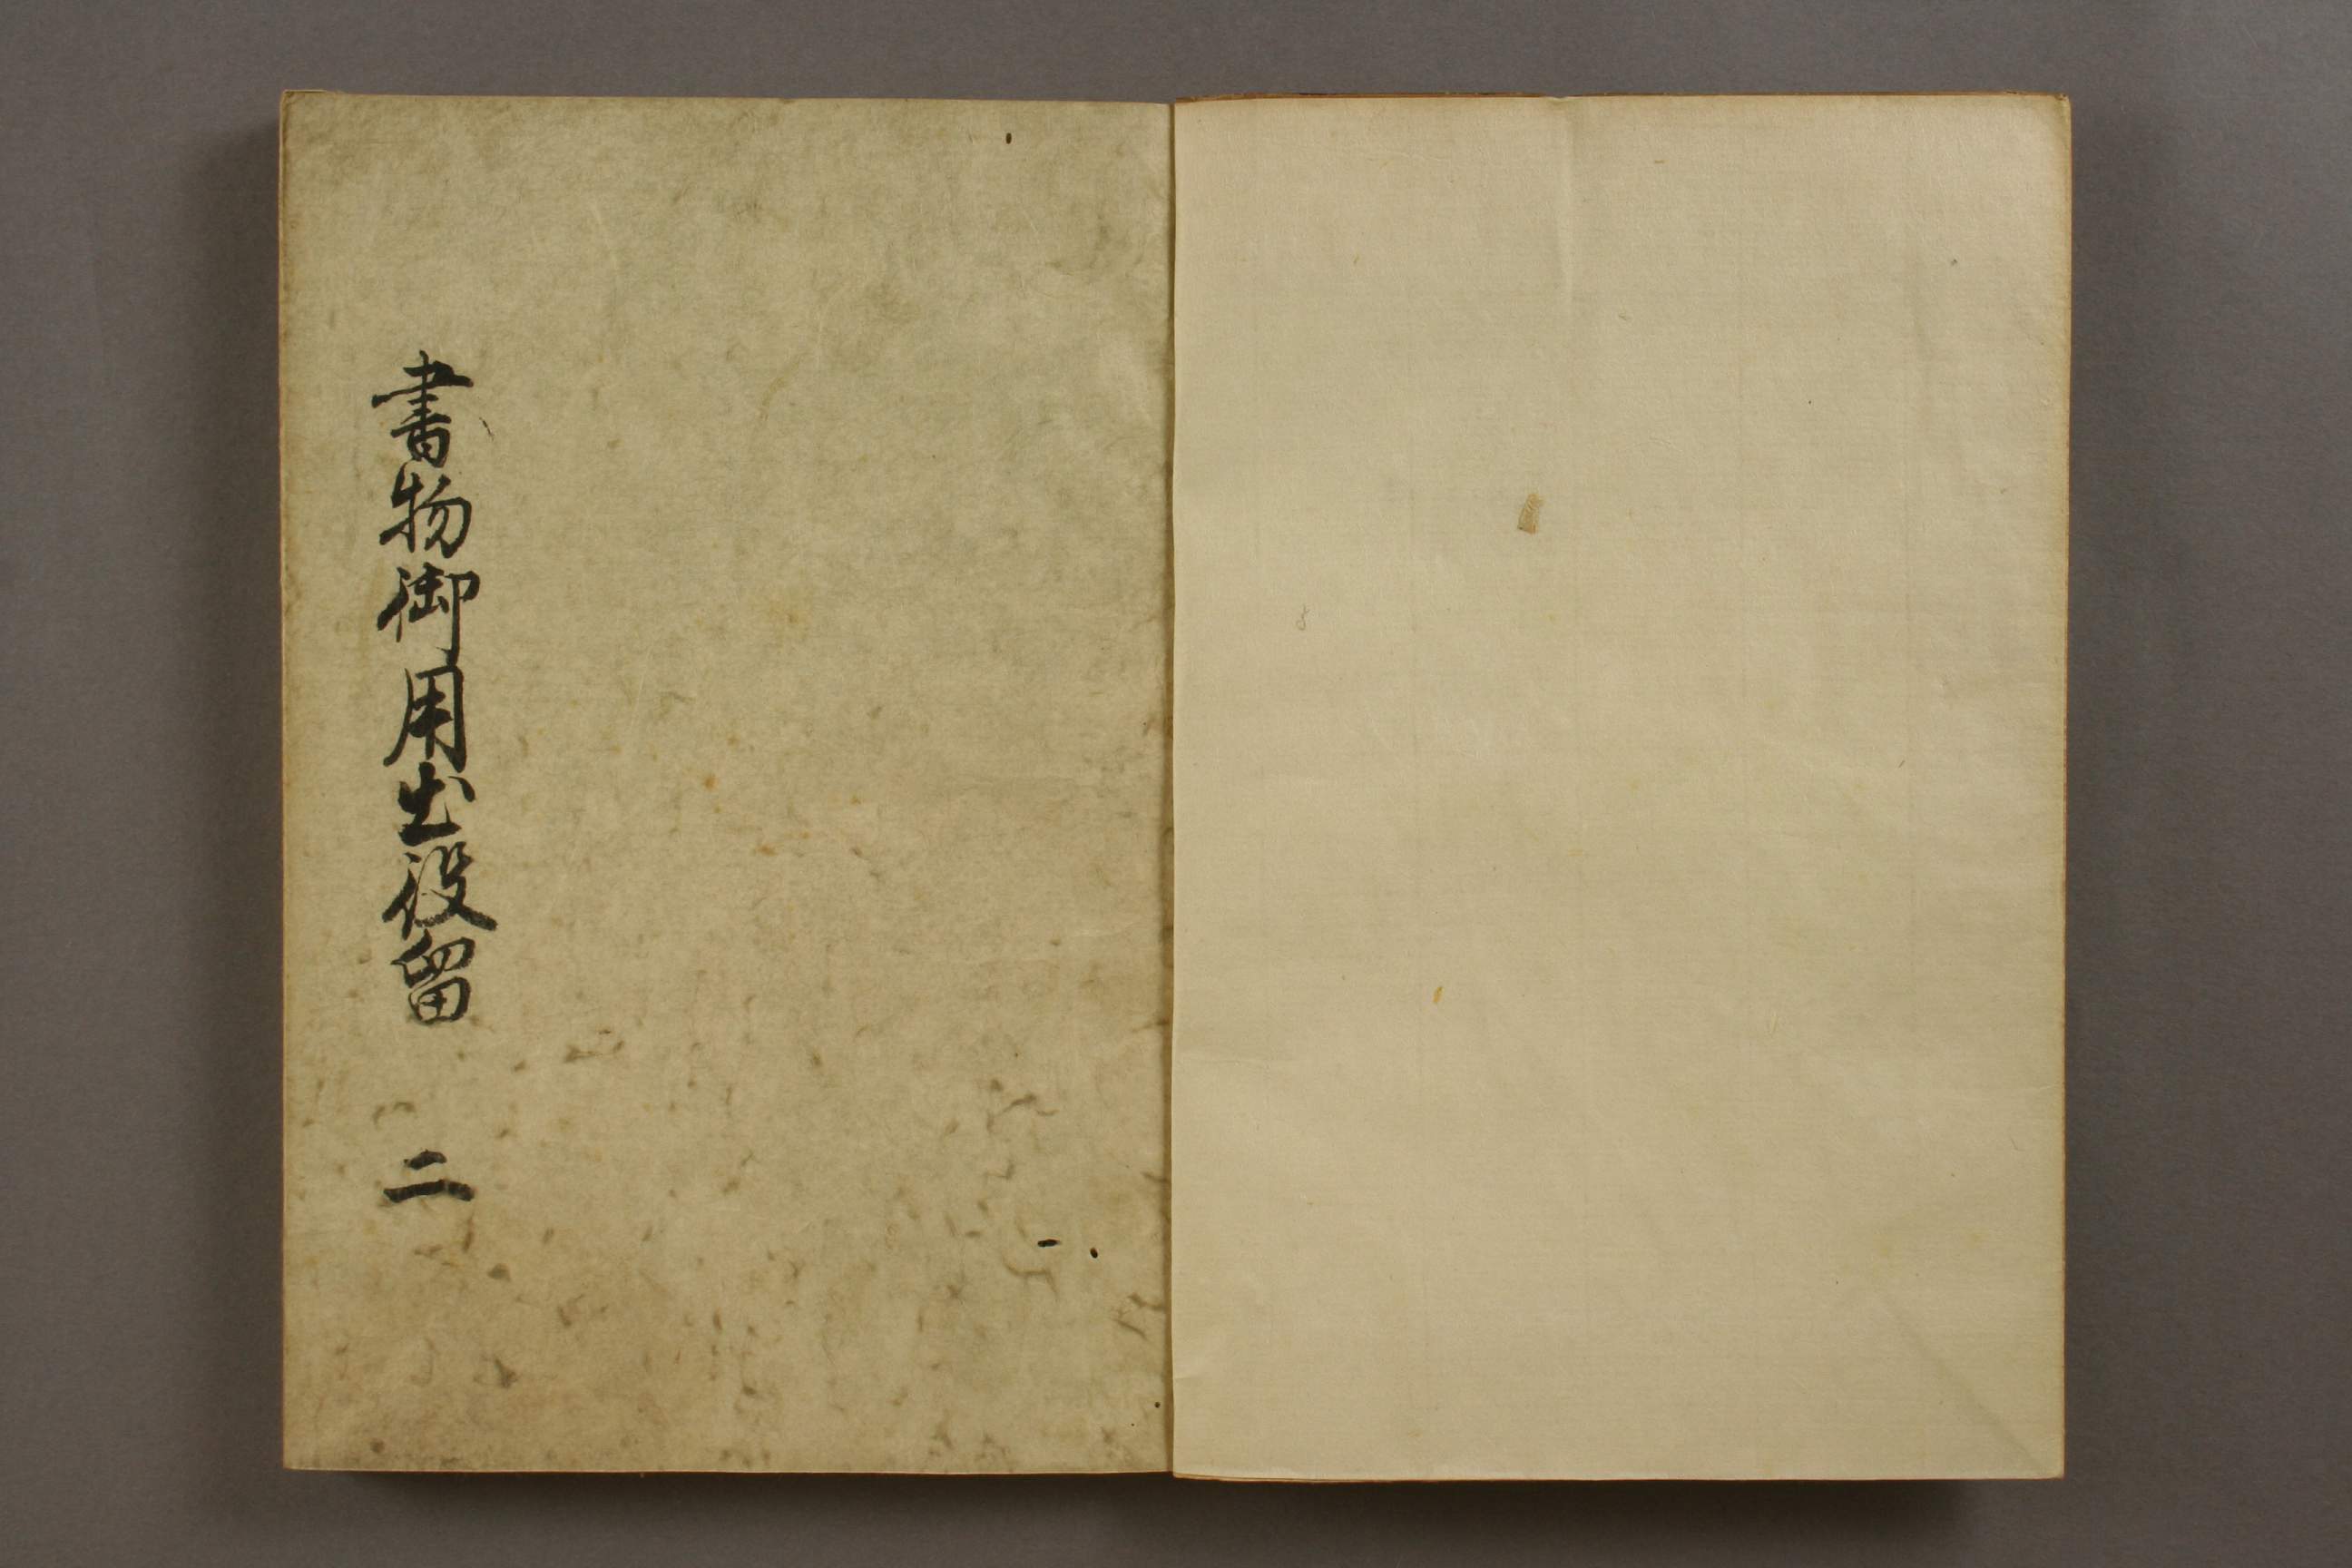 書物御用出役留　二